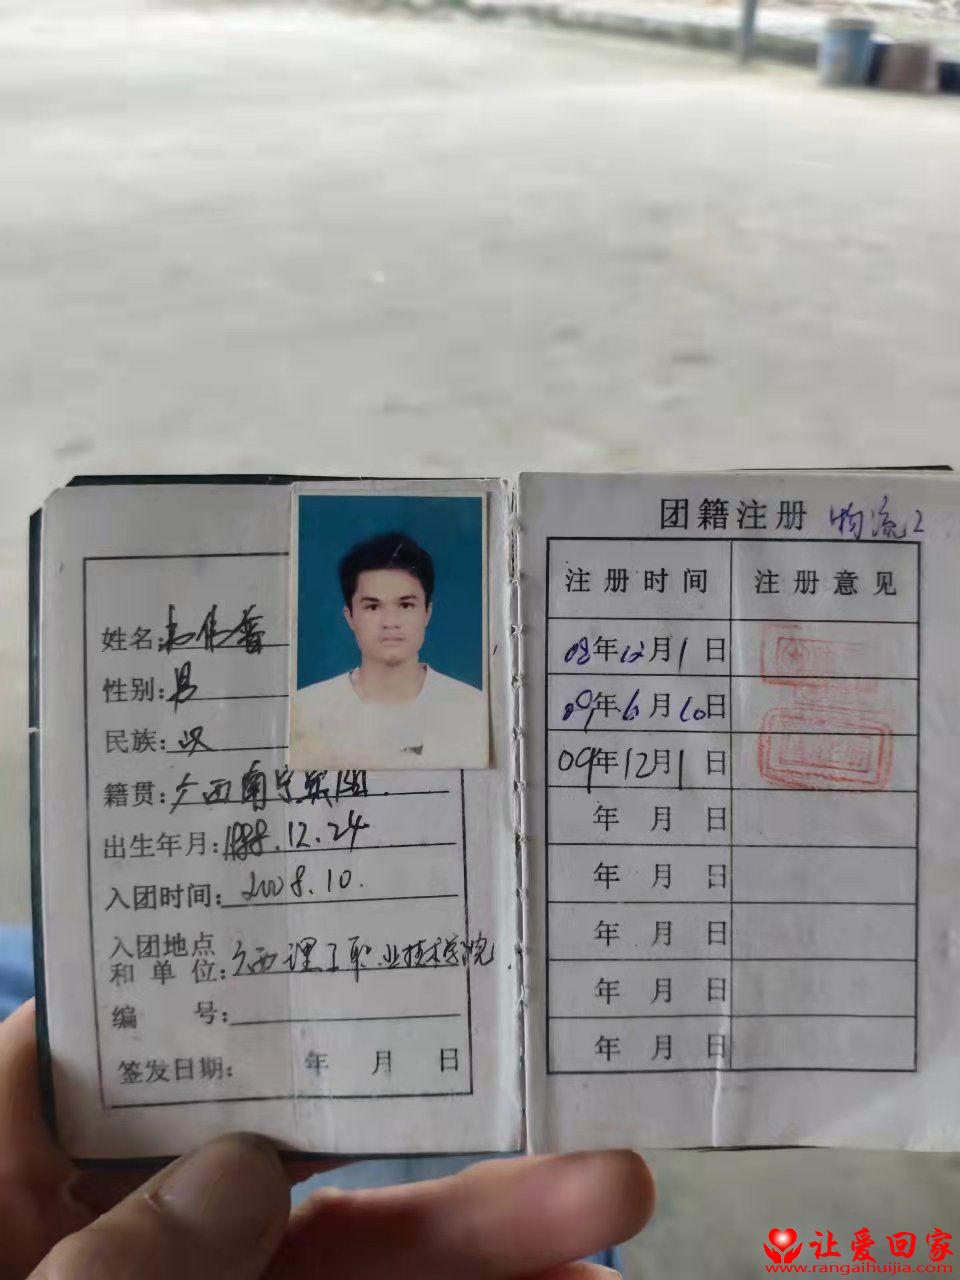 姓名:
性别:男
民族:汉
籍贯:广西南宁
出生年月:1988.12.24
入团时间:2008.10.
入团地点
和单位:广西理工职业技术学院
编 号:
签发日期: 年 月 日
团籍注册 物流2
注册时间 注册意见
08年12月1日
09年6月10日
09年12月1日
年 月 日
年 月 日
年 月 日
年 月 日
年 月 日
让爱回家
www.rangaihuijia.com